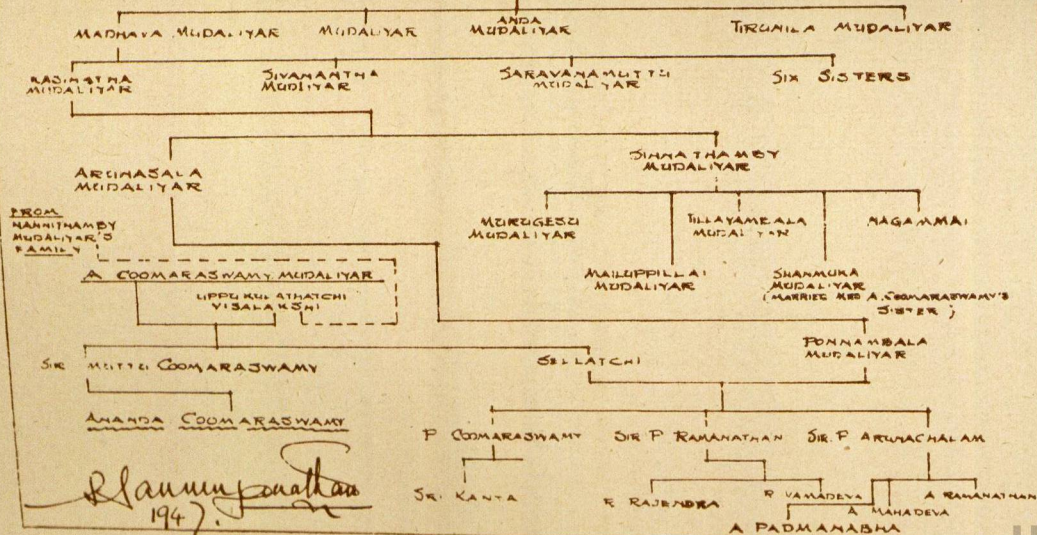 MADHAVA MUDALIYAR
MUDALIYAR
ANDA
MUDALIYAR
TIRUNILA MUDALIYAR
MUDALIYAR
SIVANANTHA
MUDLIYAR
SARAVANAMUTTU
MUDALIYAR
SIX SISTERS
ARUNASALA
MUDALIYAR
SINNATHAMBY
MUDALIYAR
FROM
NANNITHAMBY
MUDALIYAR'S
FAMILY
MURUGESU
MUDALIYAR
TILLAYAMBALA
MUDALIYAR
NAGAMMAI
MAILUPPILLAI
MUDALIYAR
SHANMUKA
MUDALIYAR
(MARRIED A. COOMARASWAMY'S
SISTER)
A COOMARASWAMY MUDALIYAR
UPPUKULATHATCHI
VISALAKSHI
PONNAMBALA
MUDALIYAR
SIR MUTTU COOMARASWAMY
SELLATCHI
ANANDA COOMARASWAMY
P COOMARASWAMY
SIR P RAMANATHAN
SIR. P ARUNACHALAM
SRI KANTA
R RAJENDRA
R VAMADEVA
A MAHADEVA
A RAMANATHAN
A PADMANABHA
1947.